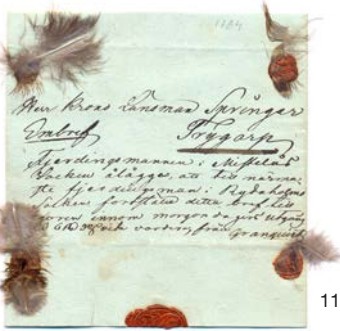 1884
Herr Krono Länsman Springer
Ombref Trygarp
Fjerdingsmannen i Mistelås
Socken ålägges, att till närma-
ste fjerdingsman i Rydaholms
Socken fortskaffa detta bref till
innom morgon dagen
och vardera från Granquist
11